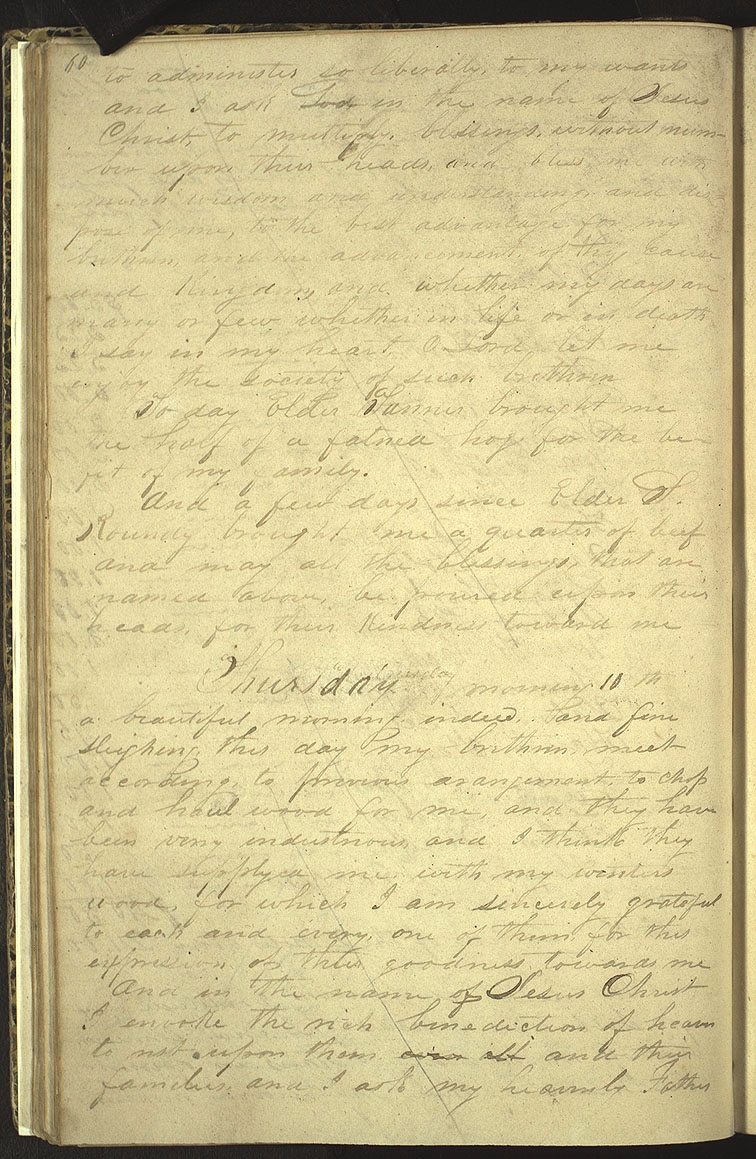 60
to administer so liberally, to my wants
and I ask God in the name of Jesus
Christ, to multiply, blessings, without num-
ber upon their heads, and bless me with
much wisdom and understanding, and dis-
pose of me, to the best advantage for my
brethren, and the advancement of thy cause
and Kingdom, and whether my days are
many or few whether in life or in death
I say in my heart, O Lord, let me
enjoy the society of such brethren
To day Elder Tanner brought me
the half of a fatned hog for the be-
fit of my family.
And a few days since Elder S.
Roundy brought me a quarter of beef
and may all the blessings, that are
named above, be poured upon their
heads, for their kindness toward me
Thursday morning 10th
a beautiful morning indeed, and fine
sleighing, this day my brethren meet
according, to previous arangement, to chop
and haul wood for me, and they have
been very industrious, and I think they
have supplyed me with my winters
wood, for which I am sincerely grateful
to each and every, one of them, for this
expression of their goodness towards me
And in the name of Jesus Christ
I envoke the rich benediction of heaven
to rest upon them even all and their
families, and I ask my heavenly Father